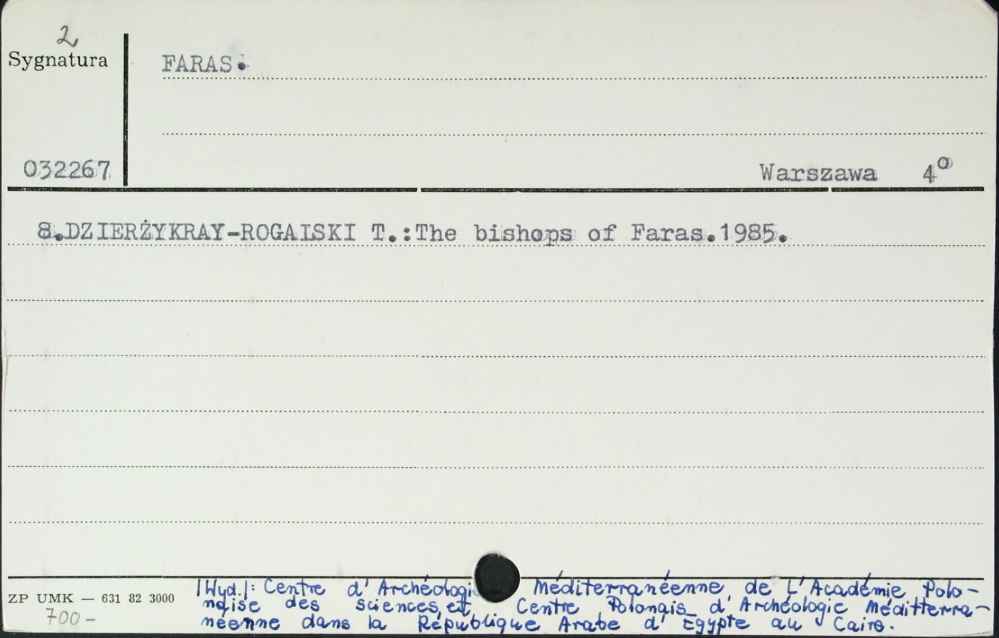 2
Sygnatura
FARAS.
032267
Warszawa 4°
8.DZIERŻYKRAY-ROGALSKI T.:The bishops of Faras.1985.
ZP UMK — 631 82 3000
700-
|Wyd.|: Centre d'Archéologi Méditerranéenne de L'Académie Polo-
naise des sciences, et Centre Polonais d'Archéologie Méditterra-
néenne dans la République Arabe d'Egypte au Caire.